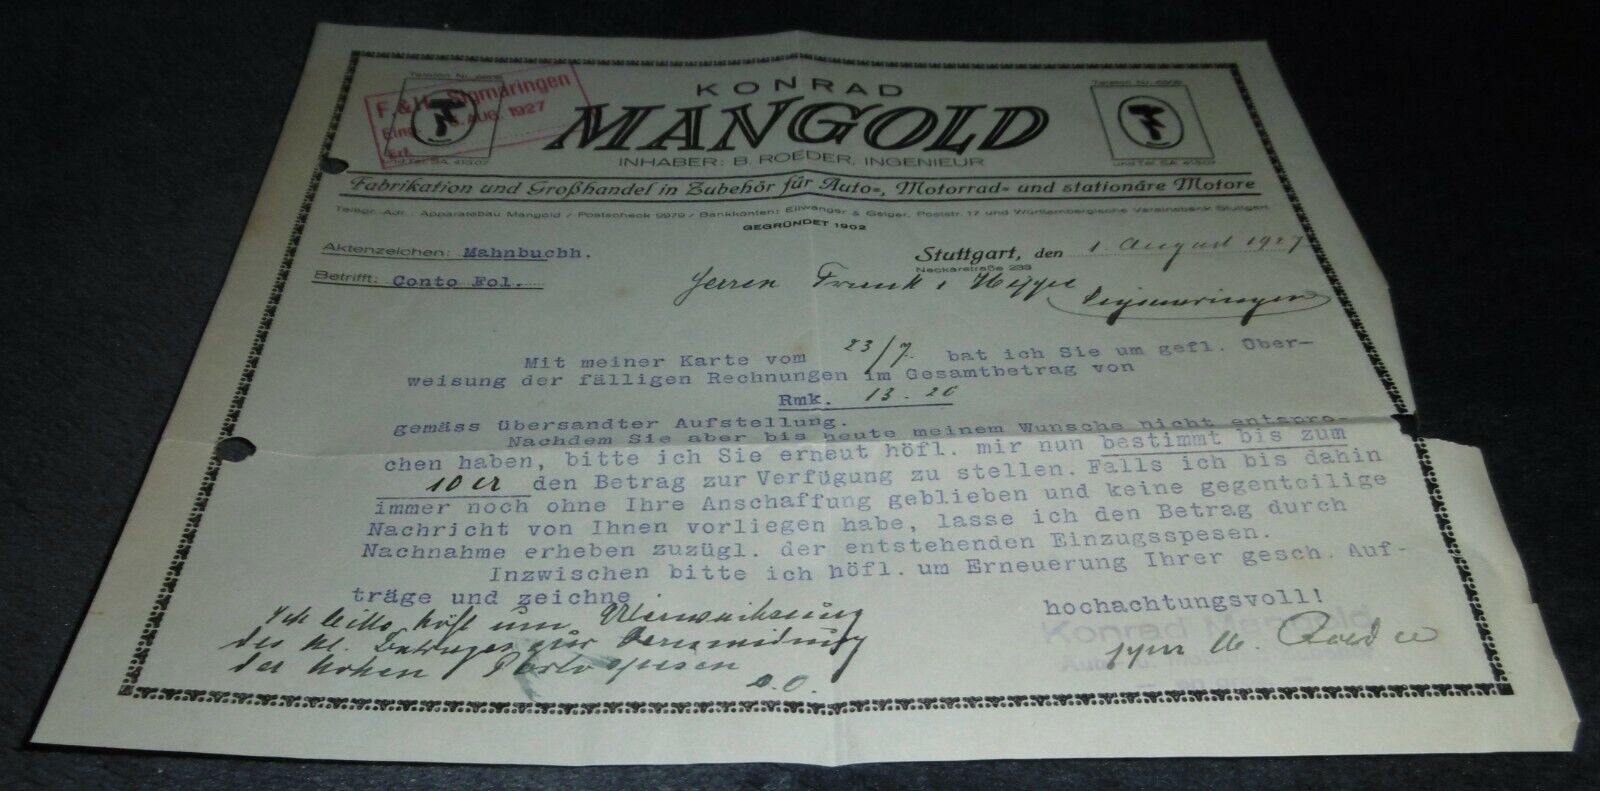 Telefon Nr.
F. & H. Sigmaringen
Eing. AUG. 1927
Erl.
und Tel. SA. 41507
KONRAD
MANGOLD
INHABER: B. ROEDER, INGENIEUR
Telefon Nr.
und Tel. SA. 41507
Fabrikation und Großhandel in Zubehör für Auto-, Motorrad- und stationäre Motore
Telegr.-Adr.: Apparatebau Mangold / Postscheck 9979 / Bankkonten: Ellwanger & Geiger, Poststr. 17 und Württembergische Vereinsbank Stuttgart
GEGRÜNDET 1902
Aktenzeichen: Mahnbuchh.
Stuttgart, den 1. August 1927
Neckarstraße 233
Betrifft: Conto Fol.
Herren Frank &
Sigmaringen
Mit meiner Karte vom 23/7. bat ich Sie um gefl. Über-
weisung der fälligen Rechnungen im Gesamtbetrag von
Rmk. 13.20
gemäss übersandter Aufstellung.
Nachdem Sie aber bis heute meinem Wunsche nicht entspro-
chen haben, bitte ich Sie erneut höfl. mir nun bestimmt bis zum
10 cr den Betrag zur Verfügung zu stellen. Falls ich bis dahin
immer noch ohne Ihre Anschaffung geblieben und keine gegenteilige
Nachricht von Ihnen vorliegen habe, lasse ich den Betrag durch
Nachnahme erheben zuzügl. der entstehenden Einzugsspesen.
Inzwischen bitte ich höfl. um Erneuerung Ihrer gesch. Auf-
träge und zeichne
hochachtungsvoll!
Konrad Mangold
Roeder
Ich bitte höfl. um Überweisung
des kl. Betrages zur Vermeidung
der hohen Portospesen
D. O.